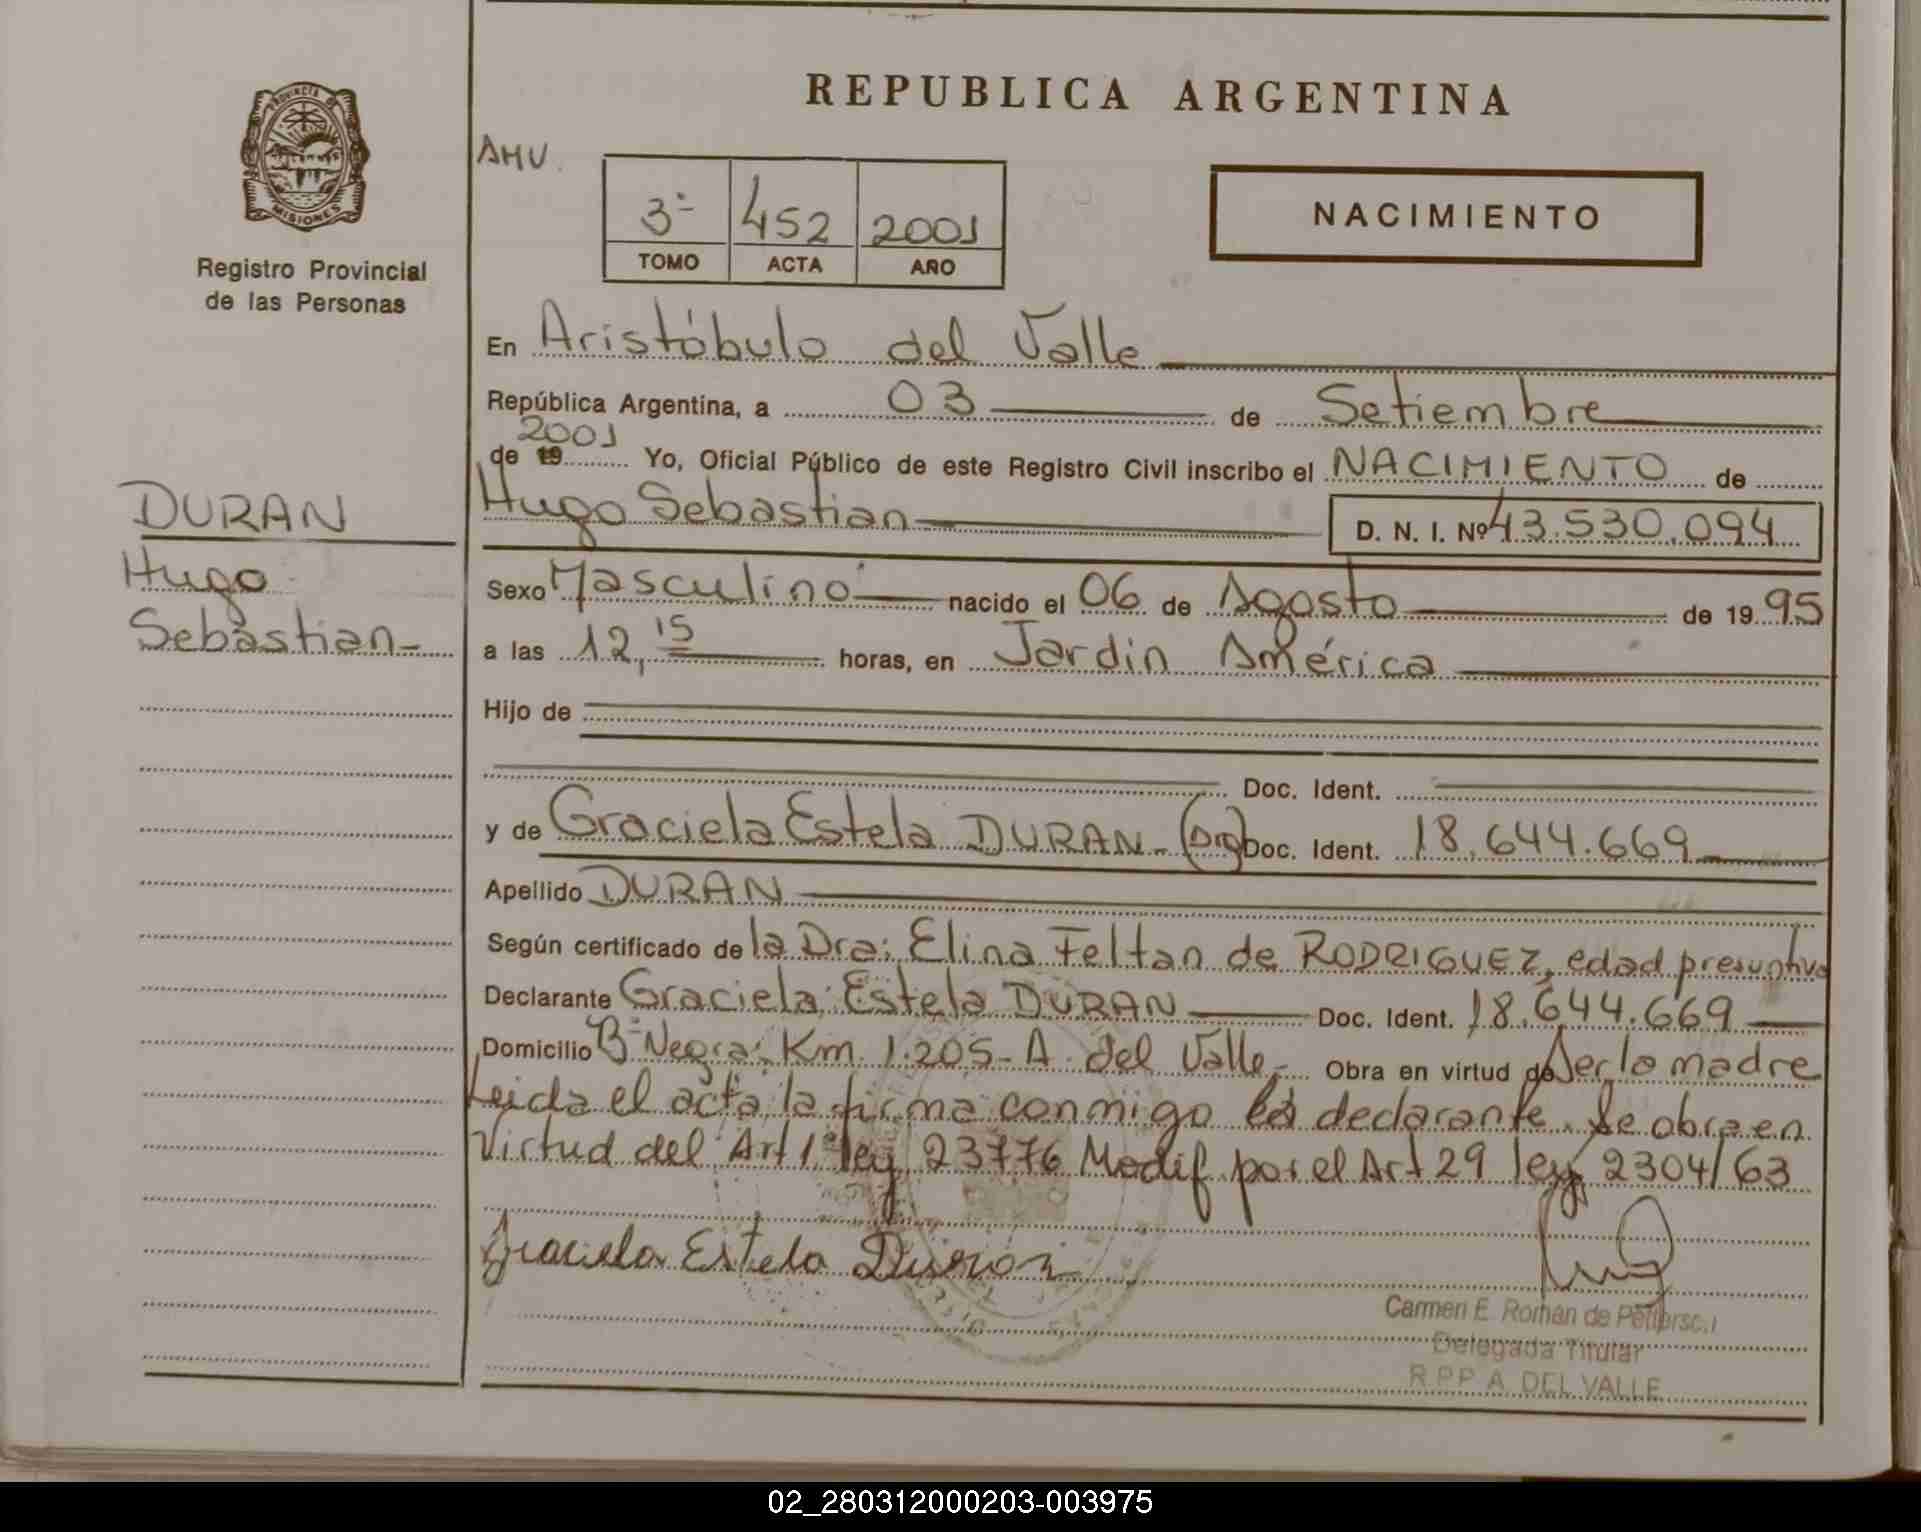 REPUBLICA ARGENTINA
PROVINCIA DE
MISIONES
Registro Provincial
de las Personas
AMV.
3º 452 2001
TOMO ACTA AÑO
NACIMIENTO
En Aristóbulo del Valle
República Argentina, a 03 de Setiembre
de 19 2001 Yo, Oficial Público de este Registro Civil inscribo el NACIMIENTO de
Hugo Sebastian D. N. I. Nº 43.530.094
DURAN
Hugo
Sebastian
Sexo Masculino nacido el 06 de Agosto de 19 95
a las 12,15 horas, en Jardin América
Hijo de
Doc. Ident.
y de Graciela Estela DURAN - (Arg) Doc. Ident. 18.644.669
Apellido DURAN
Según certificado de la Dra: Elina Feltan de RODRIGUEZ, edad presuntiva
Declarante Graciela Estela DURAN Doc. Ident. 18.644.669
Domicilio Bº Negra: Km. 1.205 - A. del Valle - Obra en virtud de Ser la madre
Leida el acta la firma conmigo la declarante. Se obra en
Virtud del Art 1º ley 23776 Modif por el Art 29 ley 2304/63
Graciela Estela Duran
Carmen E. Roman de
Delegada Titular
R.P.P. A. DEL VALLE
02_280312000203-003975